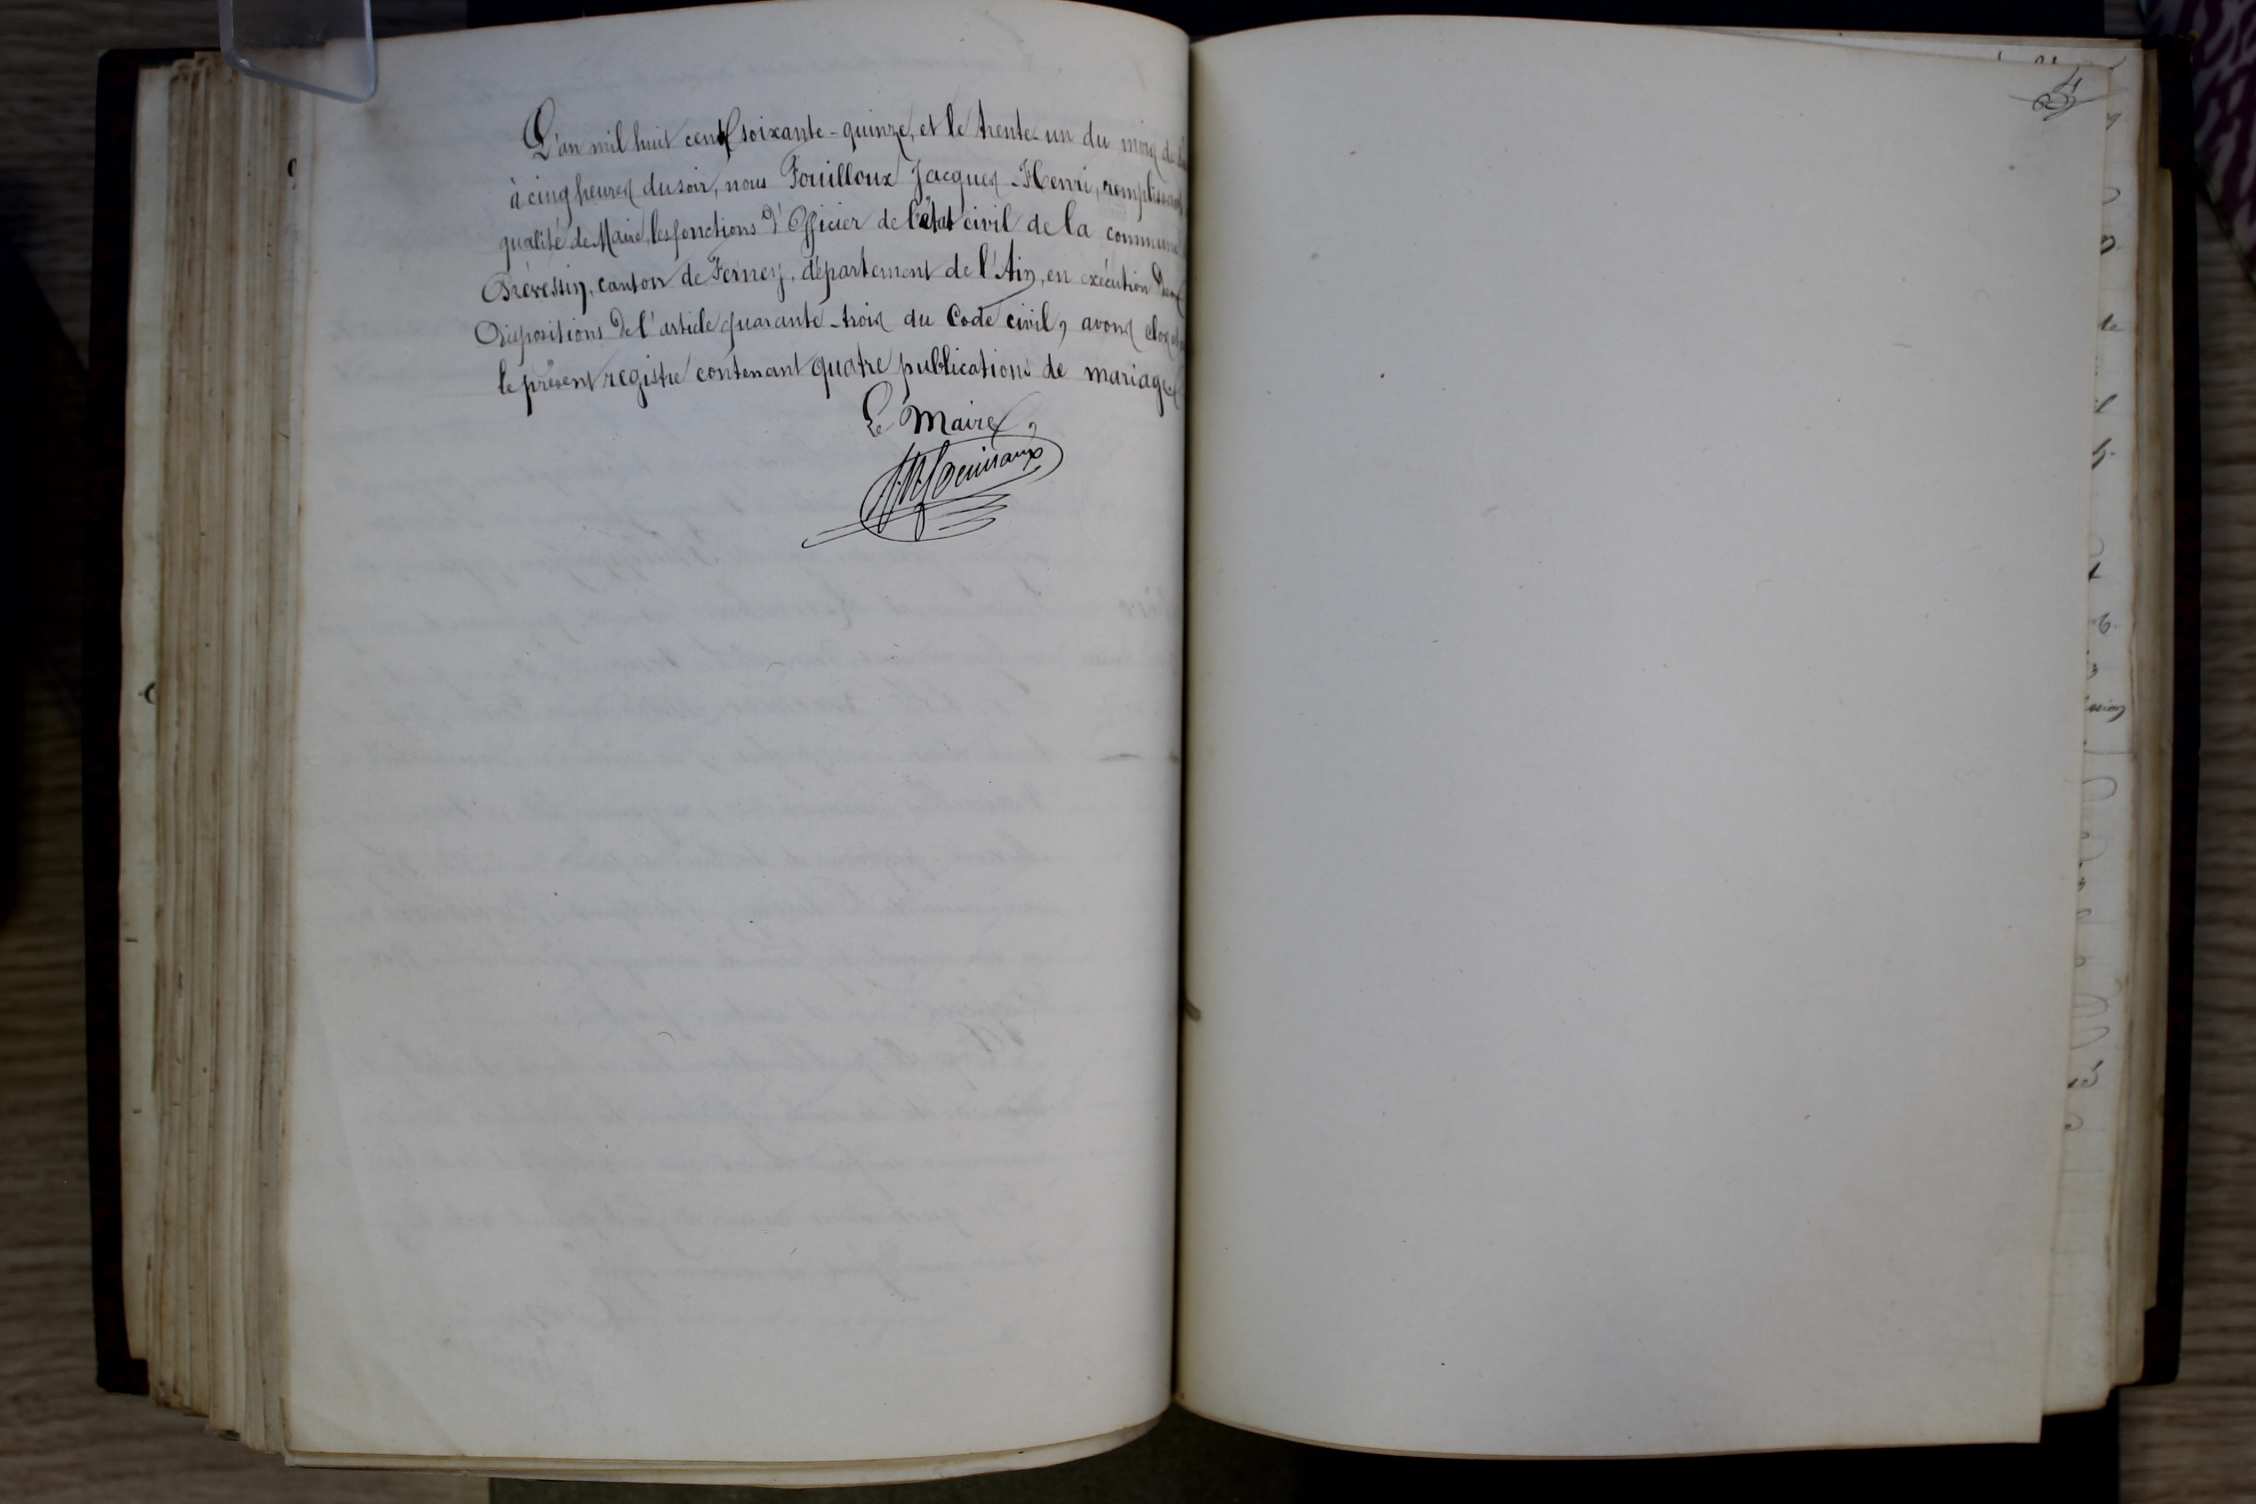 L'an mil huit cent soixante-quinze, et le trente-un du mois de
à cinq heures du soir, nous Fouilloux Jacques-Henri, remplissant
qualité de Maire, les fonctions d'Officier de l'état civil de la commune
Prévessin, canton de Ferney, département de l'Ain, en exécution des
dispositions de l'article quarante-trois du Code civil, avons clos et
le présent registre contenant quatre publications de mariages
Le Maire,